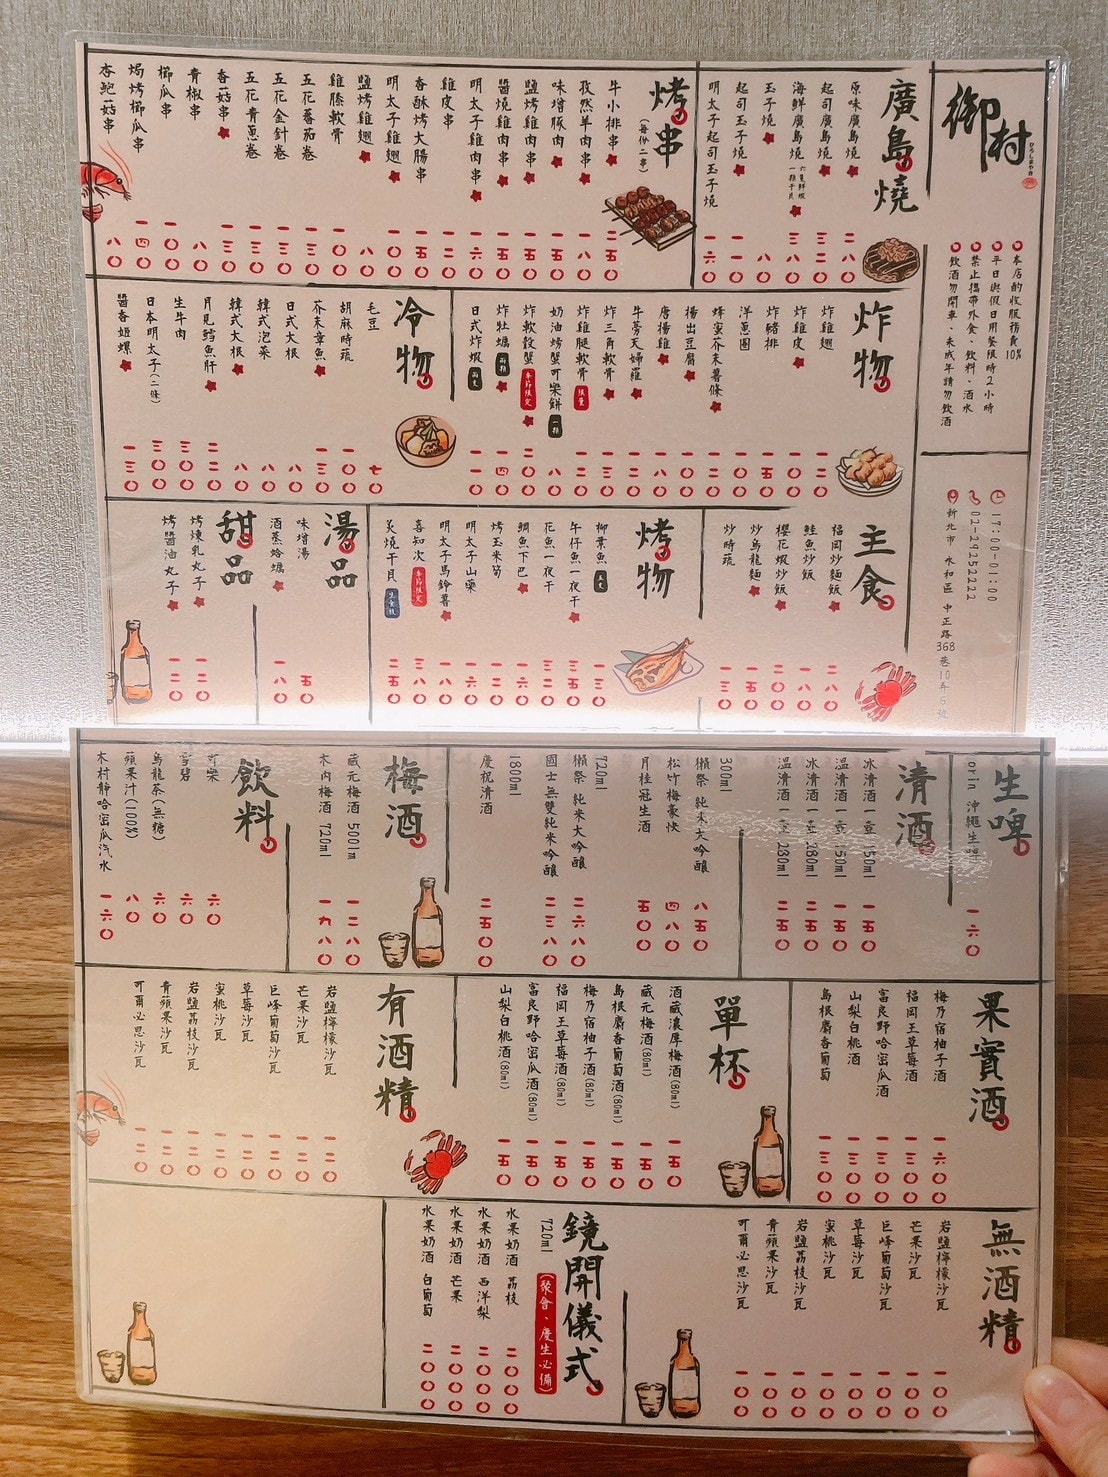 御村
本店酌收服務費10%
平日與假日用餐限時2小時
禁止攜帶外食、飲料、酒水
飲酒勿開車、未成年請勿飲酒
17:00-01:00
02-29252222
新北市 永和區 中正路368巷10弄6號
廣島燒
原味廣島燒 二八〇
起司廣島燒 三二〇
海鮮廣島燒 六隻鮮蝦 一顆干貝 三八〇
玉子燒 八〇
起司玉子燒 一一〇
明太子起司玉子燒 一六〇
烤串(每份二串)
牛小排串 二五〇
孜然羊肉串 一八〇
味增豚肉串 一五〇
鹽烤雞肉串 一五〇
醬燒雞肉串 一五〇
明太子雞肉串 一六〇
雞皮串 一二〇
香酥烤大腸串 一五〇
明太子雞翅 一〇〇
鹽烤雞翅 八〇
雞膝軟骨 一〇〇
五花蕃茄卷 一三〇
五花金針卷 一三〇
五花青蔥卷 一三〇
香菇串 一三〇
青椒串 八〇
櫛瓜串 一〇〇
焗烤櫛瓜串 一四〇
杏鮑菇串 八〇
炸物
炸雞翅 一二〇
炸雞皮 一二〇
炸豬排 一五〇
洋蔥圈 一〇〇
蜂蜜芥末薯條 一二〇
揚出豆腐 一〇〇
唐揚雞 一八〇
牛蒡天婦羅 一二〇
炸三角軟骨 一三〇
炸雞腿軟骨 限量 一二〇
奶油烤螃蟹可樂餅 一顆 八〇
炸軟殼蟹 季節限定 二〇〇
炸牡蠣 一四〇
日式炸蝦 一一〇
冷物
毛豆 七〇
胡麻時蔬 一〇〇
芥末章魚 一三〇
日式大根 八〇
韓式泡菜 八〇
韓式大根 八〇
月見鱈魚肝 一二〇
生牛肉 三〇〇
日本明太子(二條) 三〇〇
醬香姬螺 一三〇
主食
福岡炒麵飯 二八〇
鮭魚炒飯 一八〇
櫻花蝦炒飯 二〇〇
炒烏龍麵 一五〇
炒時蔬 一三〇
烤物
柳葉魚 一三〇
午仔魚一夜干 三五〇
花魚一夜干 三二〇
鯛魚下巴 一六〇
烤玉米筍 一〇〇
明太子山藥 一二〇
明太子馬鈴薯 一二〇
喜知次 季節限定 一四〇〇
炙燒干貝 生食級 二五〇
湯品
味增湯 五〇
酒蒸蛤蠣 一八〇
甜品
烤煉乳丸子 一二〇
烤醬油丸子 一二〇
生啤
orin 沖繩生啤 一六〇
清酒
冰清酒一壺 150ml 一五〇
溫清酒一壺 150ml 一五〇
冰清酒一壺 280ml 二五〇
溫清酒一壺 280ml 二五〇
300ml
獺祭 純米大吟釀 八五〇
松竹梅豪快 四八〇
月桂冠生酒 五〇〇
720ml
獺祭 純米大吟釀 二六八〇
國士無雙純米吟釀 二三八〇
1800ml
慶祝清酒 二五〇〇
梅酒
蔵元梅酒 500ml 一二八〇
木內梅酒 720ml 一九八〇
飲料
可樂 六〇
雪碧 六〇
烏龍茶(無糖) 六〇
蘋果汁(100%) 八〇
木村靜哈密瓜汽水 一六〇
果實酒
梅乃宿柚子酒 一六〇〇
福岡王草莓酒 一三〇〇
富良野哈密瓜酒 一三〇〇
山梨白桃酒 一三〇〇
島根麝香葡萄 一三〇〇
單杯
酒蔵濃厚梅酒(80ml) 一五〇
蔵元梅酒(80ml) 一五〇
島根麝香葡萄酒(80ml) 一五〇
梅乃宿柚子酒(80ml) 一五〇
福岡王草莓酒(80ml) 一五〇
富良野哈密瓜酒(80ml) 一五〇
山梨白桃酒(80ml) 一五〇
有酒精
岩鹽檸檬沙瓦 一二〇
芒果沙瓦 一二〇
巨峰葡萄沙瓦 一二〇
草莓沙瓦 一二〇
蜜桃沙瓦 一二〇
岩鹽荔枝沙瓦 一二〇
青蘋果沙瓦 一二〇
可爾必思沙瓦 一二〇
無酒精
岩鹽檸檬沙瓦 一〇〇
芒果沙瓦 一〇〇
巨峰葡萄沙瓦 一〇〇
草莓沙瓦 一〇〇
蜜桃沙瓦 一〇〇
岩鹽荔枝沙瓦 一〇〇
青蘋果沙瓦 一〇〇
可爾必思沙瓦 一〇〇
鏡開儀式
(聚會、慶生必備)
720ml
水果奶酒 荔枝 二〇〇〇
水果奶酒 西洋梨 二〇〇〇
水果奶酒 芒果 二〇〇〇
水果奶酒 白葡萄 二〇〇〇